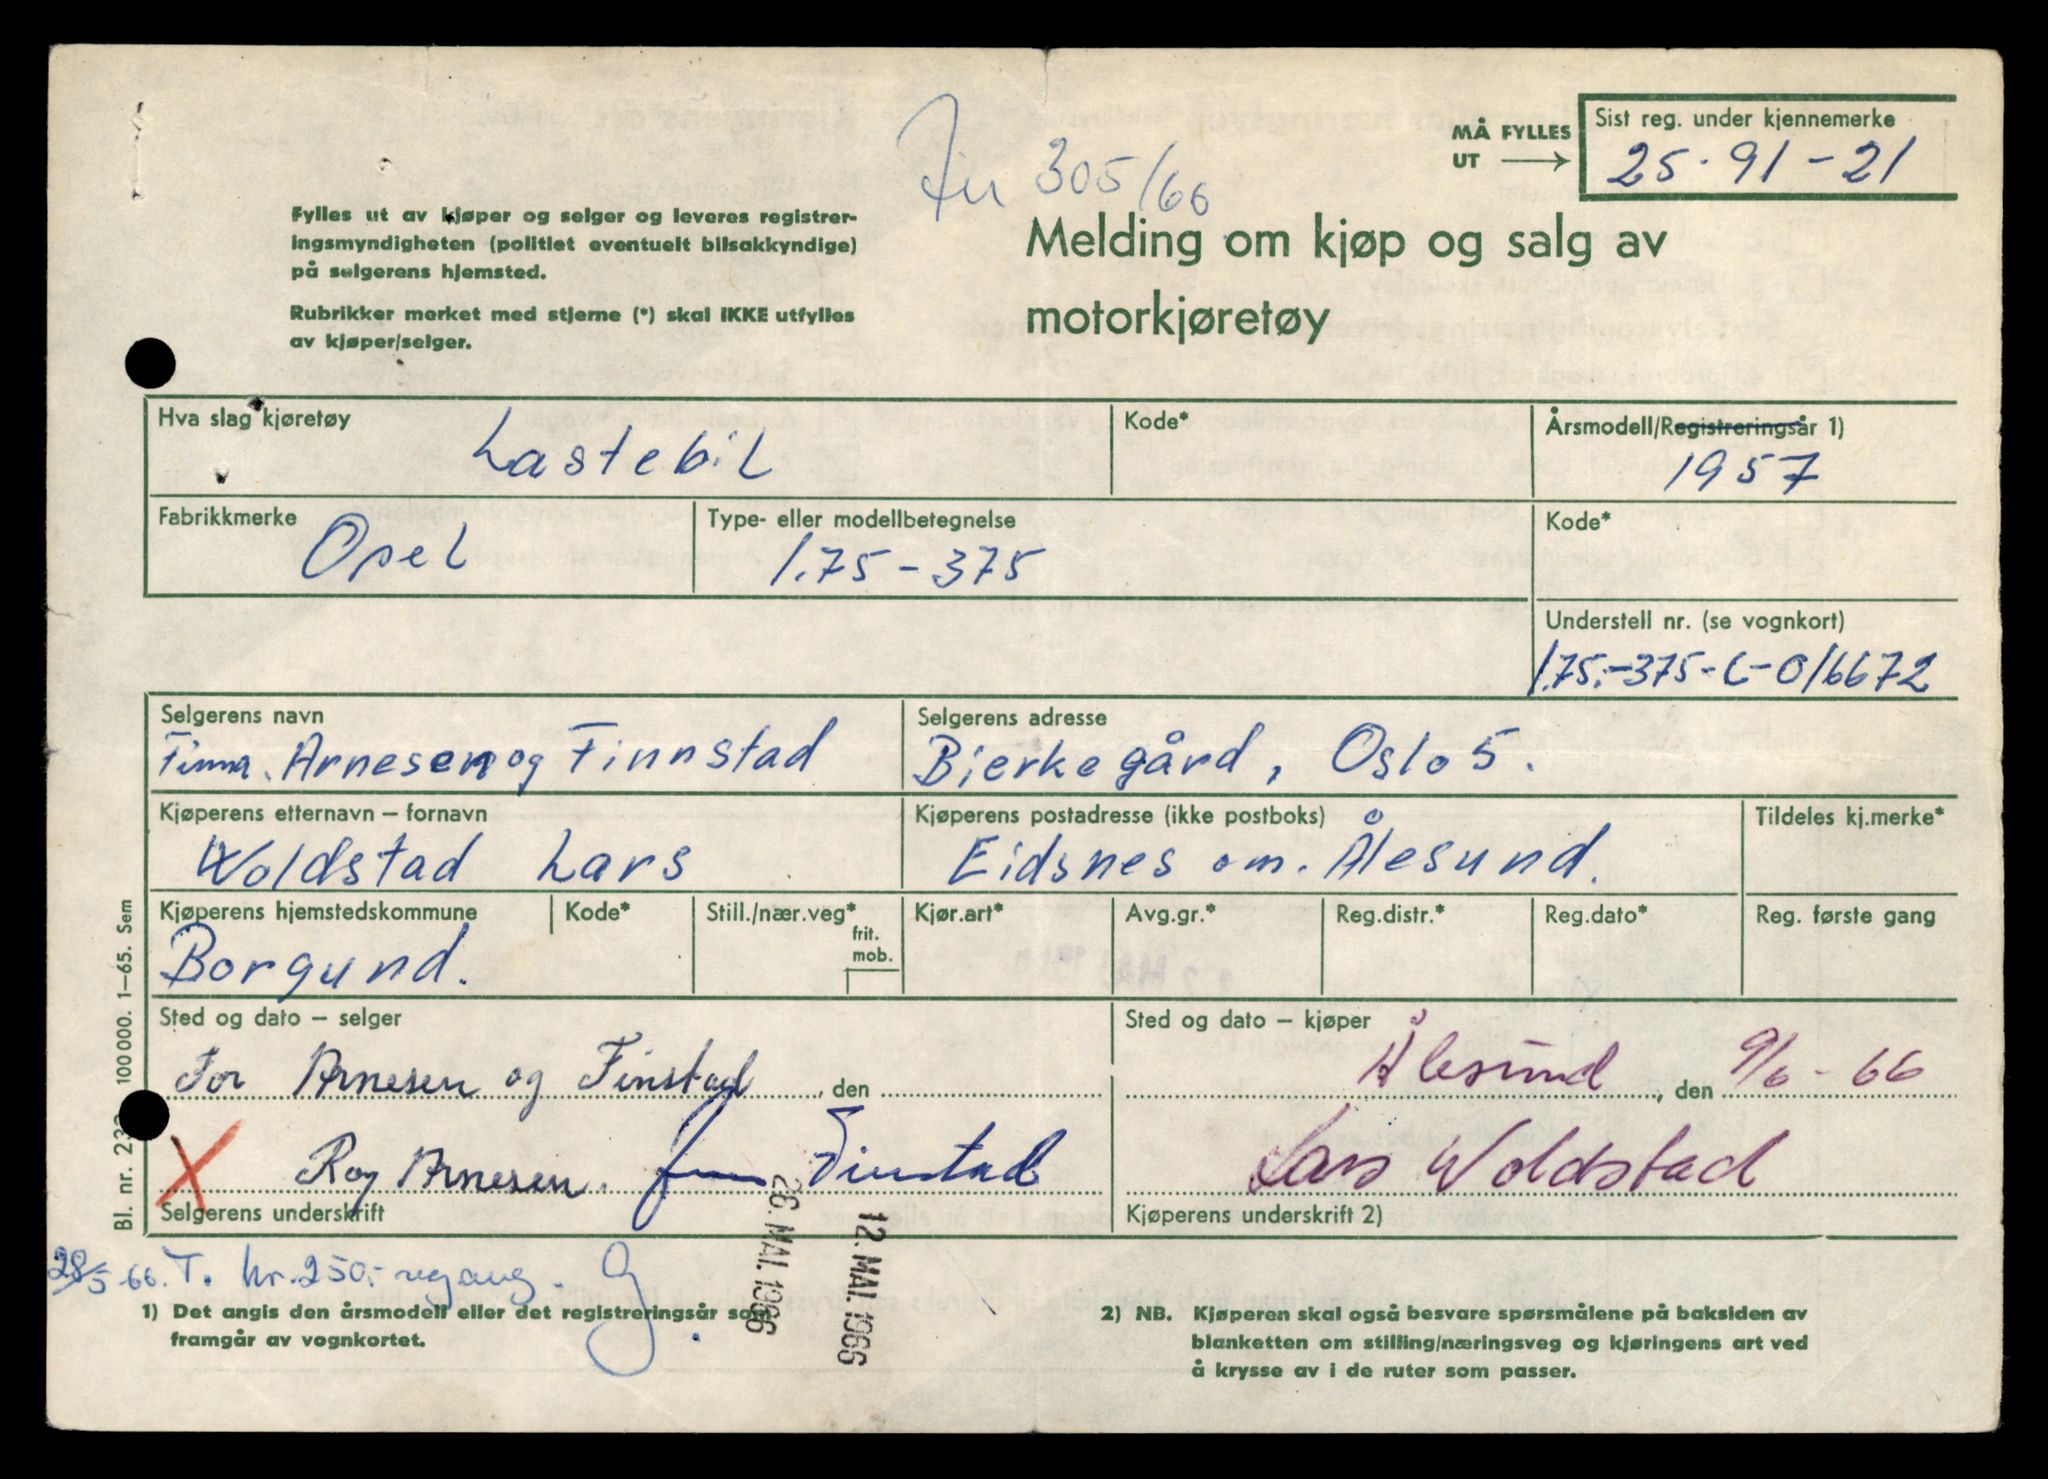 305/66
MÅ FYLLES
UT
Sist reg. under kjennemerke
25-91-21
Fylles ut av kjøper og selger og leveres registrer-
ingsmyndigheten (politiet eventuelt bilsakkyndige)
på selgerens hjemsted.
Rubrikker merket med stjerne (*) skal IKKE utfylles
av kjøper/selger.
Melding om kjøp og salg av
motorkjøretøy
Hva slag kjøretøy
Lastebil
Kode*
Årsmodell/Registreringsår 1)
1957
Fabrikkmerke
Opel
Type- eller modellbetegnelse
1.75-375
Kode*
Understell nr. (se vognkort)
1.75.-375-L-016672
Selgerens navn
Firma. Arnesen og Finnstad
Selgerens adresse
Bjerke gård, Oslo 5.
Kjøperens etternavn – fornavn
Woldstad Lars
Kjøperens postadresse (ikke postboks)
Eidsnes om. Ålesund.
Tildeles kj.merke*
Kjøperens hjemstedskommune
Borgund.
Kode*
Still./nær.veg*
frit.
mob.
Kjør.art*
Avg.gr.*
Reg.distr.*
Reg.dato*
Reg. første gang
Sted og dato – selger
For Arnesen og Finstad, den
Sted og dato – kjøper
Ålesund, den 9/6-66
X Roy Arnesen. Finstad
Selgerens underskrift
Lars Woldstad
Kjøperens underskrift 2)
26. MAI. 1966
12. MAI. 1966
28/5 66. T. kr. 250.-
1) Det angis den årsmodell eller det registreringsår som
framgår av vognkortet.
2) NB. Kjøperen skal også besvare spørsmålene på baksiden av
blanketten om stilling/næringsveg og kjøringens art ved
å krysse av i de ruter som passer.
Bl. nr. 100 000. 1–65. Sem